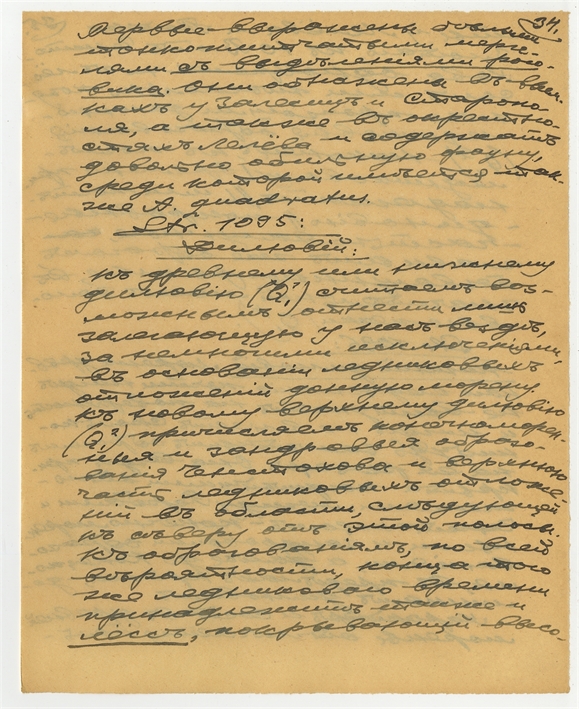 34.
Первые выражены бѣлыми
тонкоплитчатыми мерге-
лями съ выдѣленіями рого-
вика. Они обнажены въ выем-
кахъ у Залесицъ и Старопо-
ля, а также въ окрестно-
стяхъ Лелёва и содержатъ
довольно обильную фауну,
среди которой имѣется так-
же A. quadratus.
Str. 1095:
Дилювій:
Къ древнему или нижнему
дилювію (Q₁¹) считаемъ воз-
можнымъ отнести лишь
залегающую у насъ вездѣ,
за немногими исключеніями,
въ основаніи ледниковыхъ
отложеній донную морену.
Къ новому верхнему дилювію
(Q₁²) причисляемъ конечноморен-
ныя и зандровыя образо-
ванія Ченстохова и верхнюю
часть ледниковыхъ отложе-
ній въ области, слѣдующей
къ сѣверу отъ этой полосы.
Къ образованіямъ, по всей
вѣроятности, конца того
же ледниковаго времени
принадлежитъ также и
лёссъ, покрывающій высо-